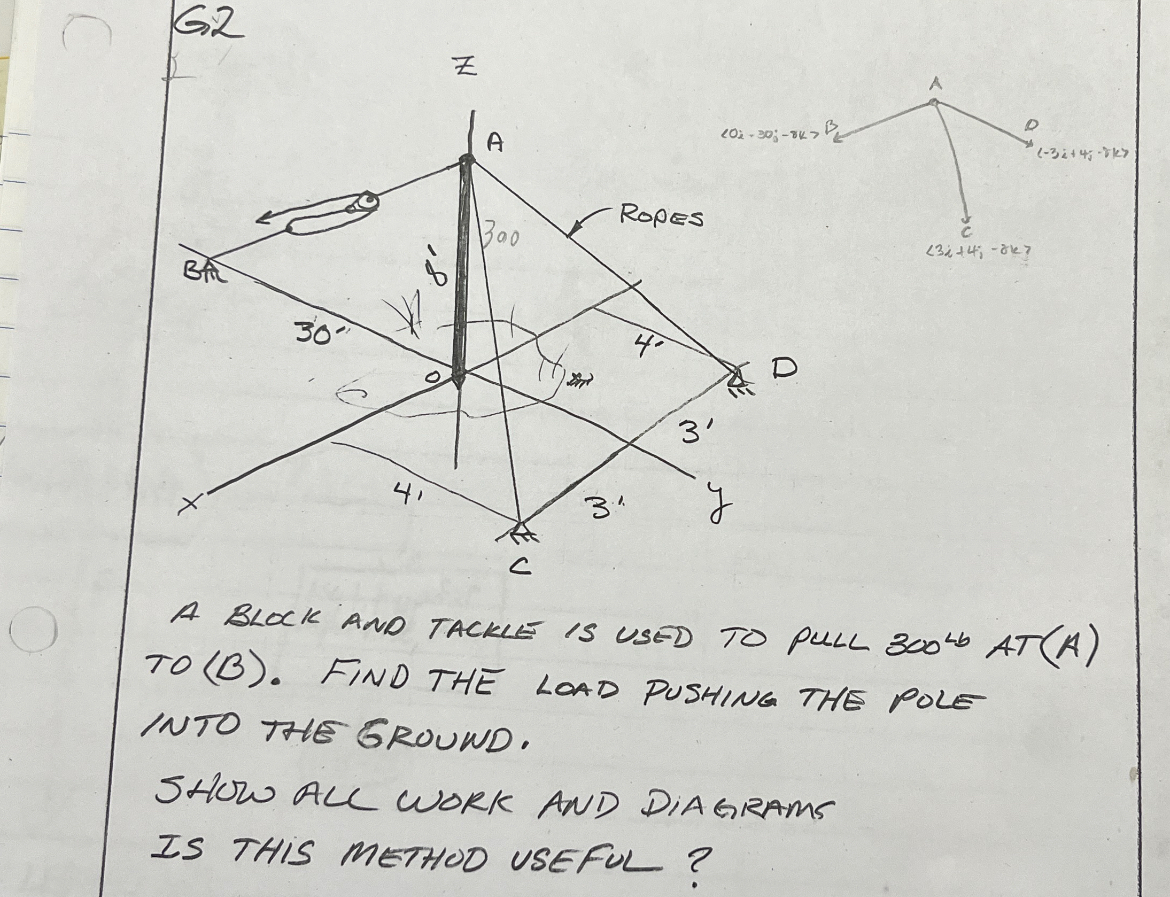 G2
Z
A
A
B
<0i - 30j - 8k>
D
<-3i + 4j - 8k>
C
<3i + 4j - 8k>
ROPES
300
8'
B
30'
4'
O
D
3'
X
4'
3'
y
C
A BLOCK AND TACKLE IS USED TO PULL 300Lb AT (A)
TO (B). FIND THE LOAD PUSHING THE POLE
INTO THE GROUND.
SHOW ALL WORK AND DIAGRAMS
IS THIS METHOD USEFUL ?